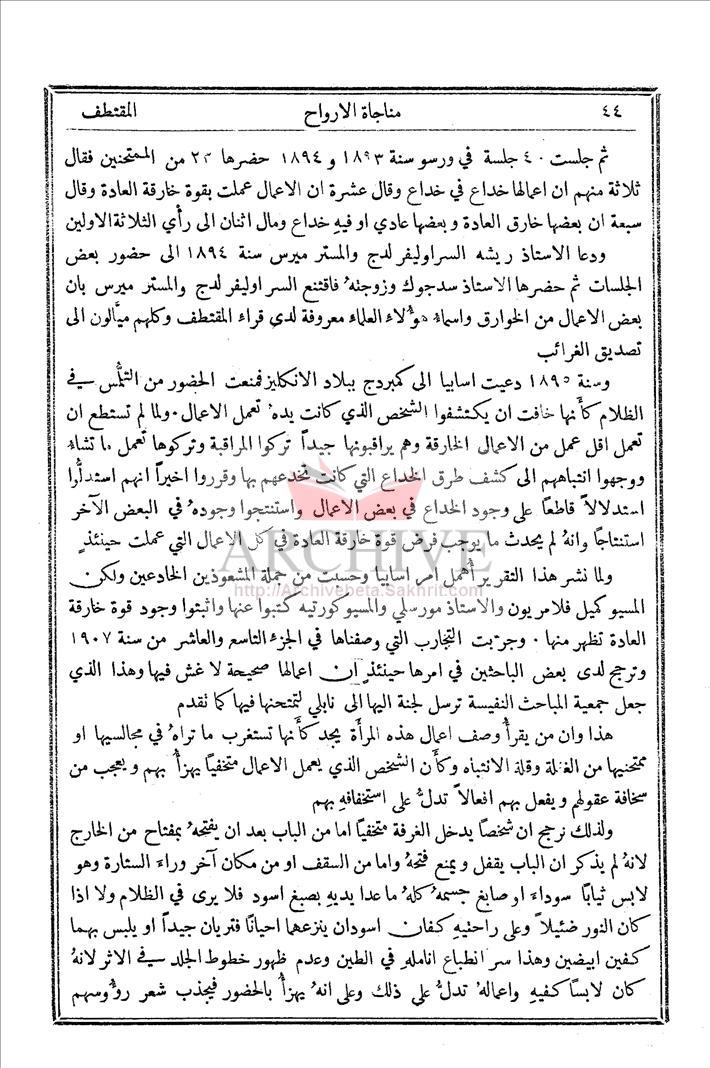 ٤٤ مناجاة الارواح المقتطف
ثم جلست ٤٠ جلسة في ورسو سنة ١٨٩٣ و ١٨٩٤ حضرها ٢٣ من الممتحنين فقال
ثلاثة منهم ان اعمالها خداع في خداع وقال عشرة ان الاعمال عملت بقوة خارقة العادة وقال
سبعة ان بعضها خارق العادة وبعضها عادي او فيهِ خداع ومال اثنان الى رأي الثلاثة الاولين
ودعا الاستاذ ريشه السر اوليفر لدج والمستر ميرس سنة ١٨٩٤ الى حضور بعض
الجلسات ثم حضرها الاستاذ سدجوك وزوجتهُ فاقتنع السر اوليفر لدج والمستر ميرس بان
بعض الاعمال من الخوارق واسماء هؤلاء العلماء معروفة لدى قراء المقتطف وكلهم ميَّالون الى
تصديق الغرائب
وسنة ١٨٩٥ دعيت اسابيا الى كمبردج ببلاد الانكليز فمنعت الحضور من التلمُّس في
الظلام كأنها خافت ان يكتشفوا الشخص الذي كانت يدهُ تعمل الاعمال ٠ ولما لم تستطع ان
تعمل اقل عمل من الاعمال الخارقة وهم يراقبونها جيداً تركوا المراقبة وتركوها تعمل ما تشاءُ
ووجهوا انتباههم الى كشف طرق الخداع التي كانت تخدعهم بها وقرروا اخيراً انهم استدلُّوا
استدلالاً قاطعاً على وجود الخداع في بعض الاعمال واستنتجوا وجودهُ في البعض الآخر
استنتاجاً وانهُ لم يحدث ما يوجب فرض قوة خارقة العادة في كل الاعمال التي عملت حينئذٍ
ARCHIVE
ولما نشر هذا التقرير أُهمل امر اسابيا وحسبت من جملة المشعوذين الخادعين ولكن
http://Archivebeta.Sakhrit.com
المسيو كميل فلامريون والاستاذ مورسلي والمسيو كورتيه كتبوا عنها واثبتوا وجود قوة خارقة
العادة تظهر منها ٠ وجرّبت التجارب التي وصفناها في الجزء التاسع والعاشر من سنة ١٩٠٧
وترجح لدى بعض الباحثين في امرها حينئذٍ ان اعمالها صحيحة لا غش فيها وهذا الذي
جعل جمعية المباحث النفيسة ترسل لجنة اليها الى نابلي لتمتحنها فيها كما تقدم
هذا وان من يقرأُ وصف اعمال هذه المرأة يجد كأنها تستغرب ما تراهُ في مجالسيها او
ممتحنيها من الغفلة وقلة الانتباه وكأن الشخص الذي يعمل الاعمال متخفياً يهزأُ بهم ويعجب من
سخافة عقولهم ويفعل بهم افعالاً تدلُّ على استخفافهِ بهم
ولذلك نرجح ان شخصاً يدخل الغرفة متخفياً اما من الباب بعد ان يفتحهُ بمفتاح من الخارج
لانهُ لم يذكر ان الباب يقفل ويمنع فتحهُ واما من السقف او من مكان آخر وراءَ الستارة وهو
لابس ثياباً سوداءَ او صابغ جسمهُ كلهُ ما عدا يديهِ بصبغ اسود فلا يرى في الظلام ولا اذا
كان النور ضئيلاً وعلى راحتيهِ كفان اسودان ينزعهما احياناً فتريان جيداً او يلبس بهما
كفين ابيضين وهذا سر انطباع اناملهِ في الطين وعدم ظهور خطوط الجلد في الاثر لانهُ
كان لابساً كفيهِ واعمالهُ تدلُّ على ذلك وعلى انهُ يهزأُ بالحضور فيجذب شعر رؤُوسهم